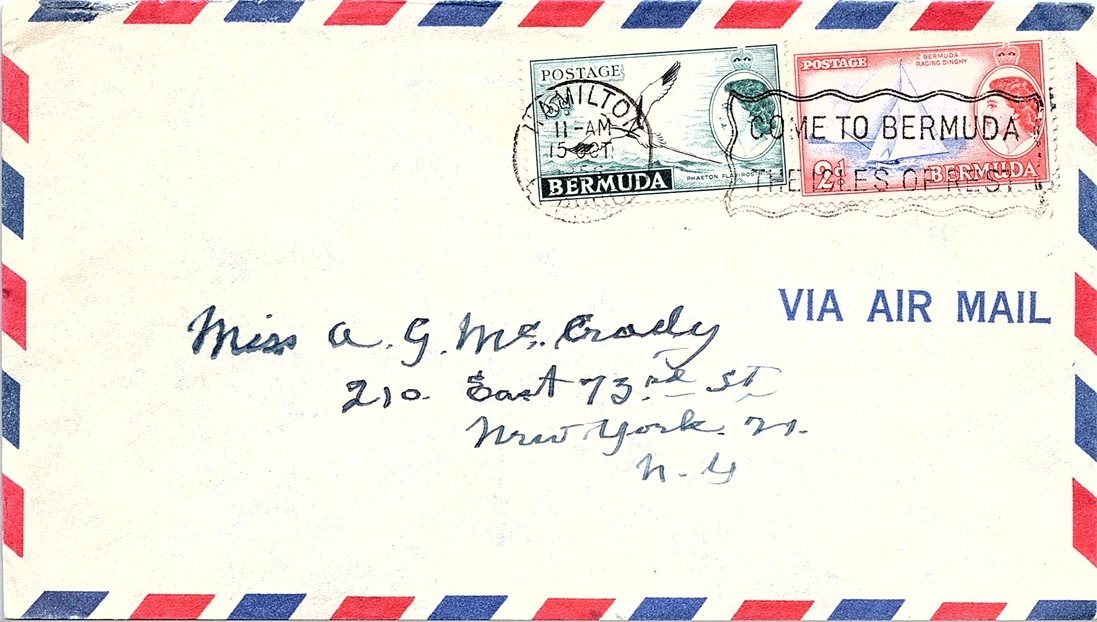 POSTAGE
HAMILTON
11-AM
15 OCT
BERMUDA
POSTAGE
BERMUDA
RACING DINGHY
2d
BERMUDA
COME TO BERMUDA
THE ISLES OF REST
VIA AIR MAIL
Miss A. G. Mc. Crady
210. East 73rd St
New York. 21.
N.Y